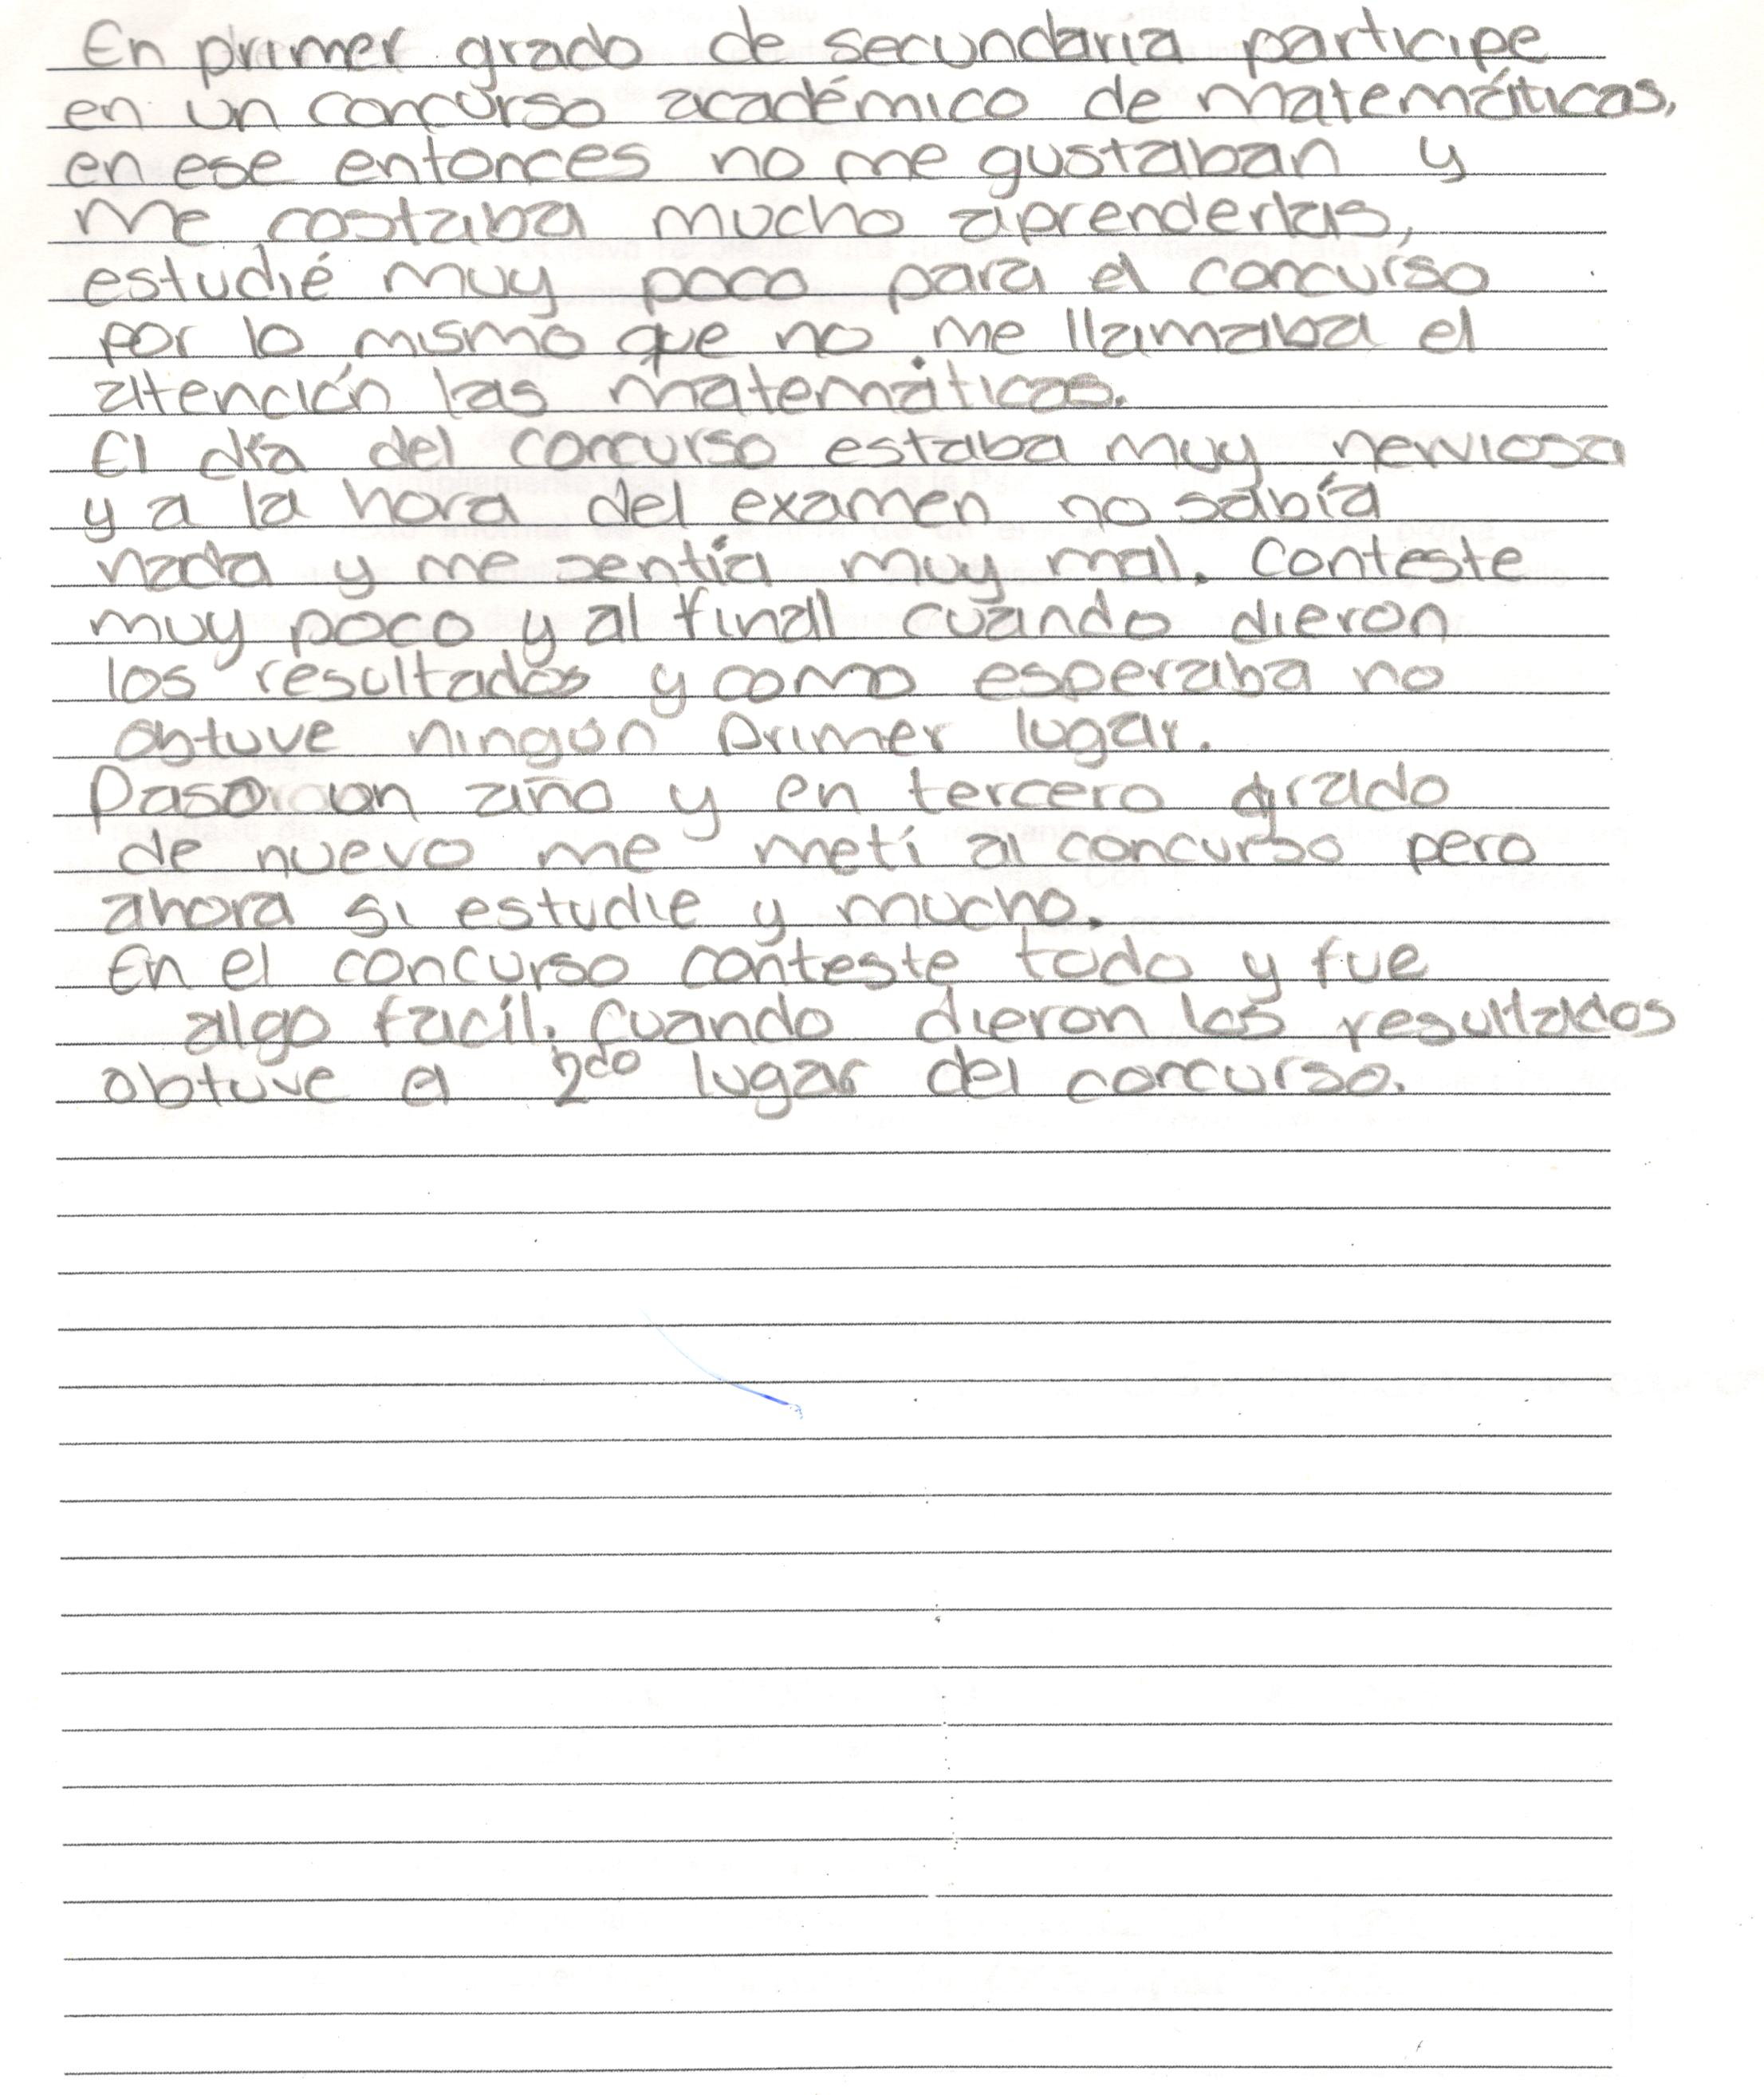 En primer grado de secundaria participe
en un concurso académico de matemáticas,
en ese entonces no me gustaban y
me costaba mucho aprenderlas,
estudié muy poco para el concurso
por lo mismo que no me llamaba el
atención las matemáticas.
El día del concurso estaba muy nerviosa
y a la hora del examen no sabía
nada y me sentía muy mal. Conteste
muy poco y al final cuando dieron
los resultados y como esperaba no
obtuve ningún primer lugar.
Paso un año y en tercero grado
de nuevo me metí al concurso pero
ahora si estudie y mucho.
En el concurso conteste todo y fue
algo facil. Cuando dieron los resultados
obtuve el 2do lugar del concurso.